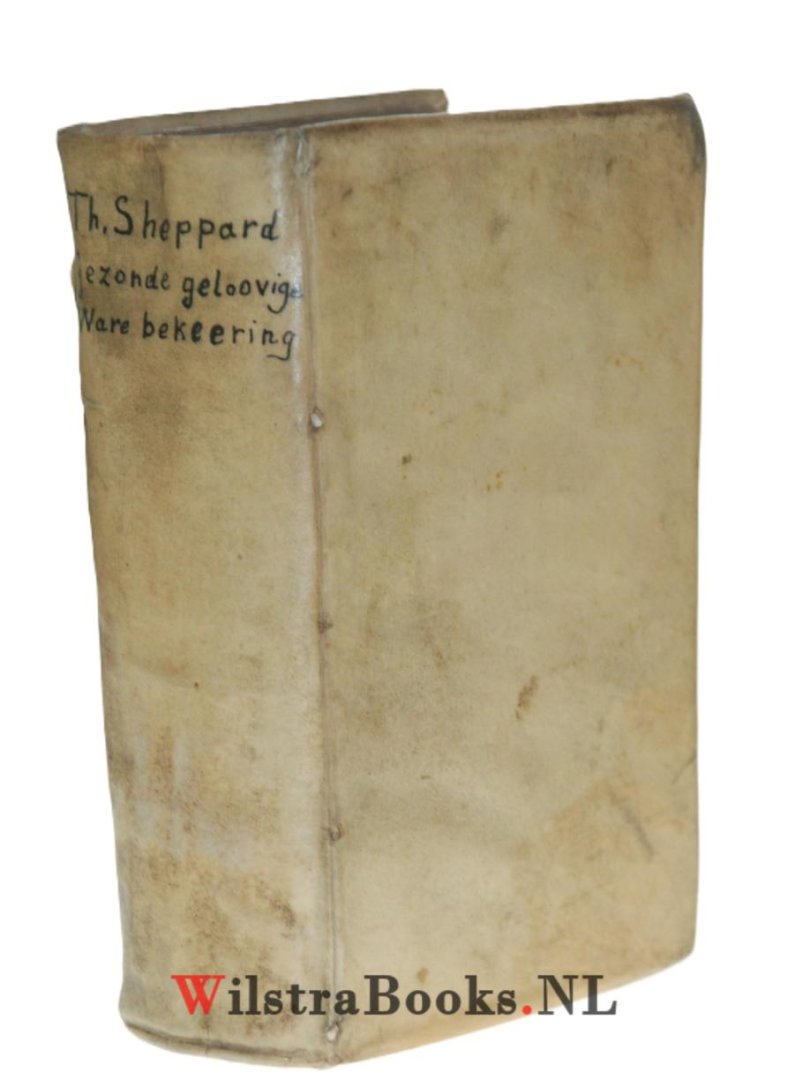 Th. Sheppard
Gezonde geloovige
Ware bekeering
WilstraBooks.NL